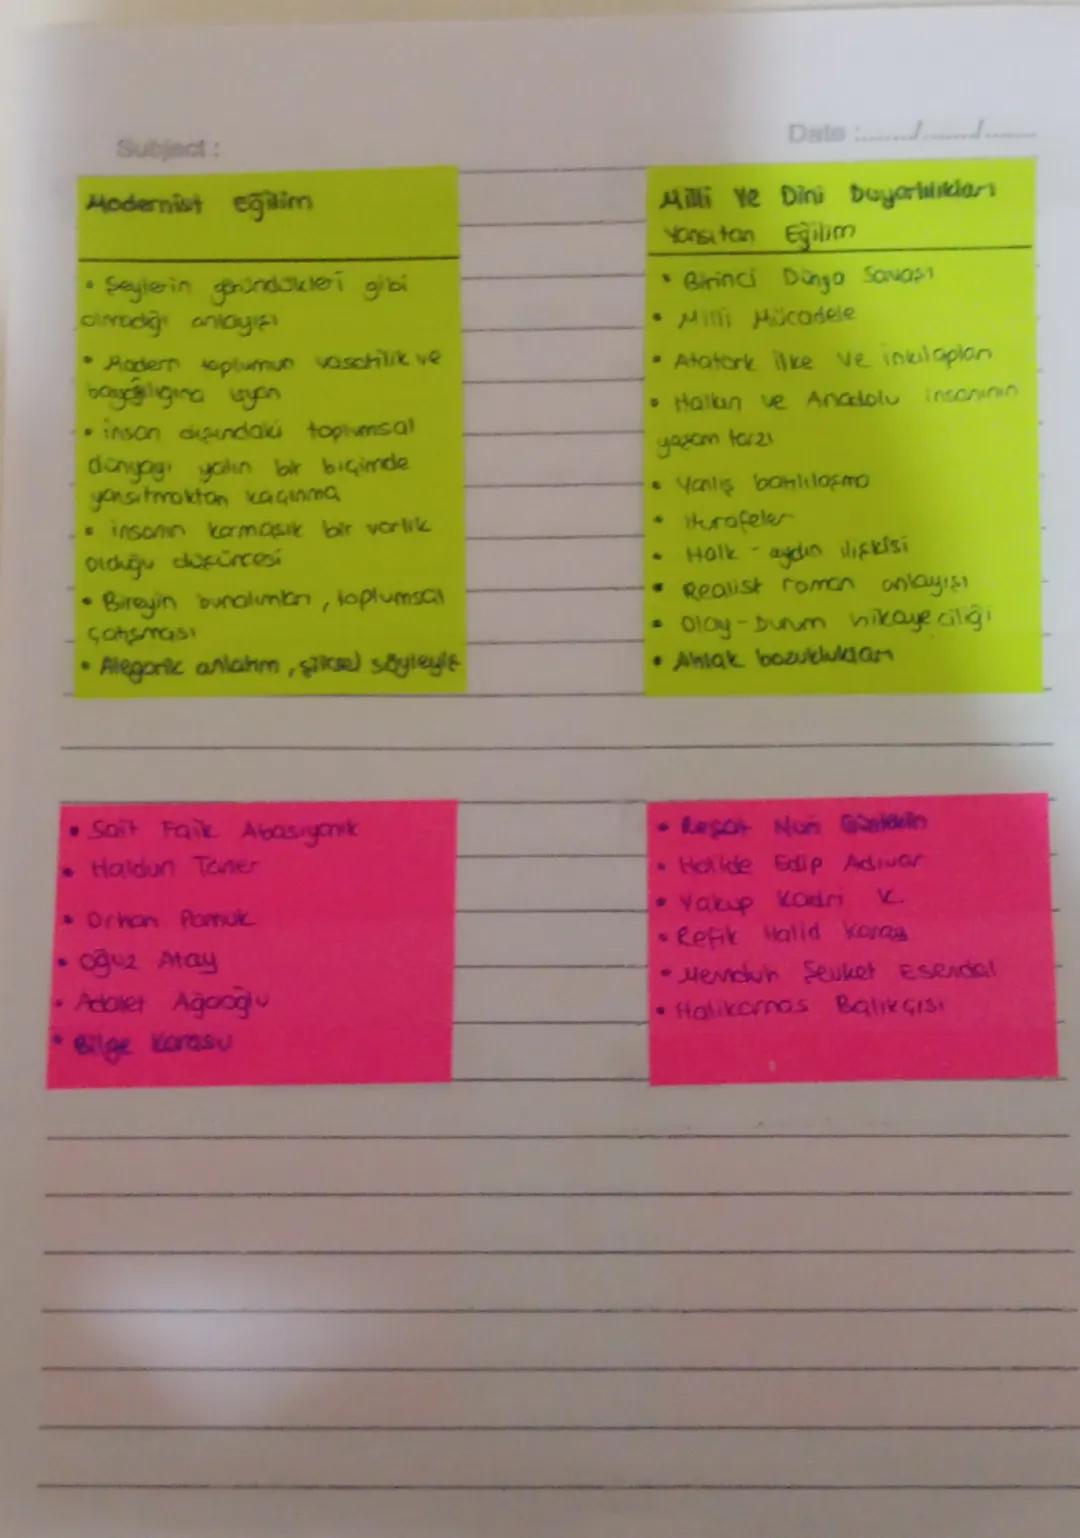 Subject :
Date :......./......./.......
Modernist Eğilim
• Şeylerin göründükleri gibi
olmadığı anlayışı
• Modern toplumun vasatilik ve
bayağılığına isyan
• insan dışındaki toplumsal
dünyayı yalın bir biçimde
yansıtmaktan kaçınma
• insanın karmaşık bir varlık
olduğu düşüncesi
• Bireyin bunalımları, toplumsal
çatışması
• Alegorik anlatım, şiirsel söyleyiş
Milli Ve Dini Duyarlılıkları
Yansıtan Eğilim
• Birinci Dünya Savaşı
• Milli Mücadele
• Atatürk ilke ve inkılapları
• Halkın ve Anadolu insanının
yaşam tarzı
• Yanlış batılılaşma
• Hurafeler
• Halk - aydın ilişkisi
• Realist roman anlayışı
• Olay-Durum hikayeciliği
• Ahlak bozuklukları
• Sait Faik Abasıyanık
• Haldun Taner
• Orhan Pamuk
• Oğuz Atay
• Adalet Ağaoğlu
• Bilge Karasu
• Reşat Nuri Güntekin
• Halide Edip Adıvar
• Yakup Kadri K.
• Refik Halid Karay
• Memduh Şevket Esendal
• Halikarnas Balıkçısı